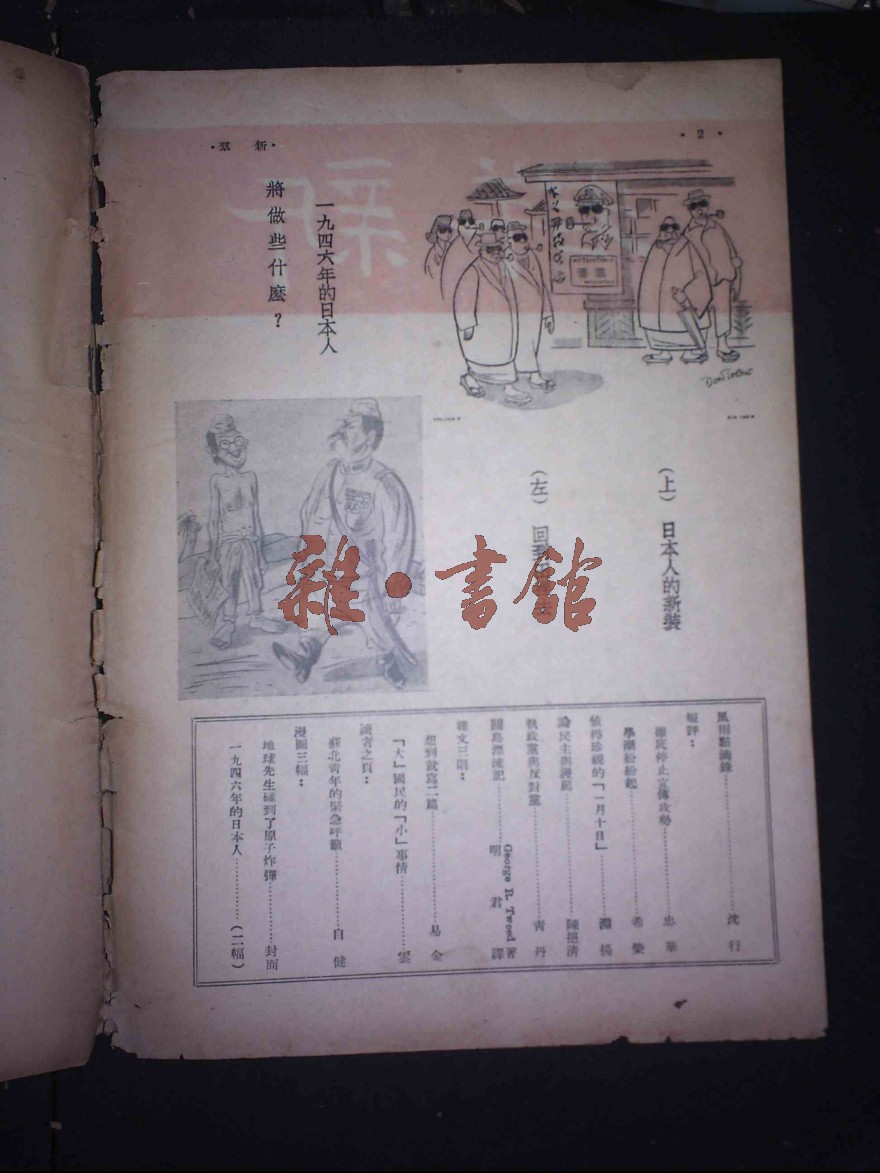 • 2 •
• 新 羣 •
ATTENTION
一九四六年的日本人
將做些什麼？
(上) 日本人的新裝
(左) 回到
雜·書館
風雨點滴錄……沈行
短評：
徹底停止宣傳攻勢……忠華
學潮紛紛起……希榮
值得珍視的「一月十日」……淵楊
論民主與謾罵……陳挹清
執政黨與反對黨……青丹
關島漂流記……George R. Tweed 著
明君 譯
雜文三則：
想到就寫二篇……易金
「大」國民的「小」事情……雲
讀者之頁：
蘇北青年的緊急呼籲……自健
漫圖三幅：
地球先生碰到了原子炸彈……封面
一九四六年的日本人……(二幅)